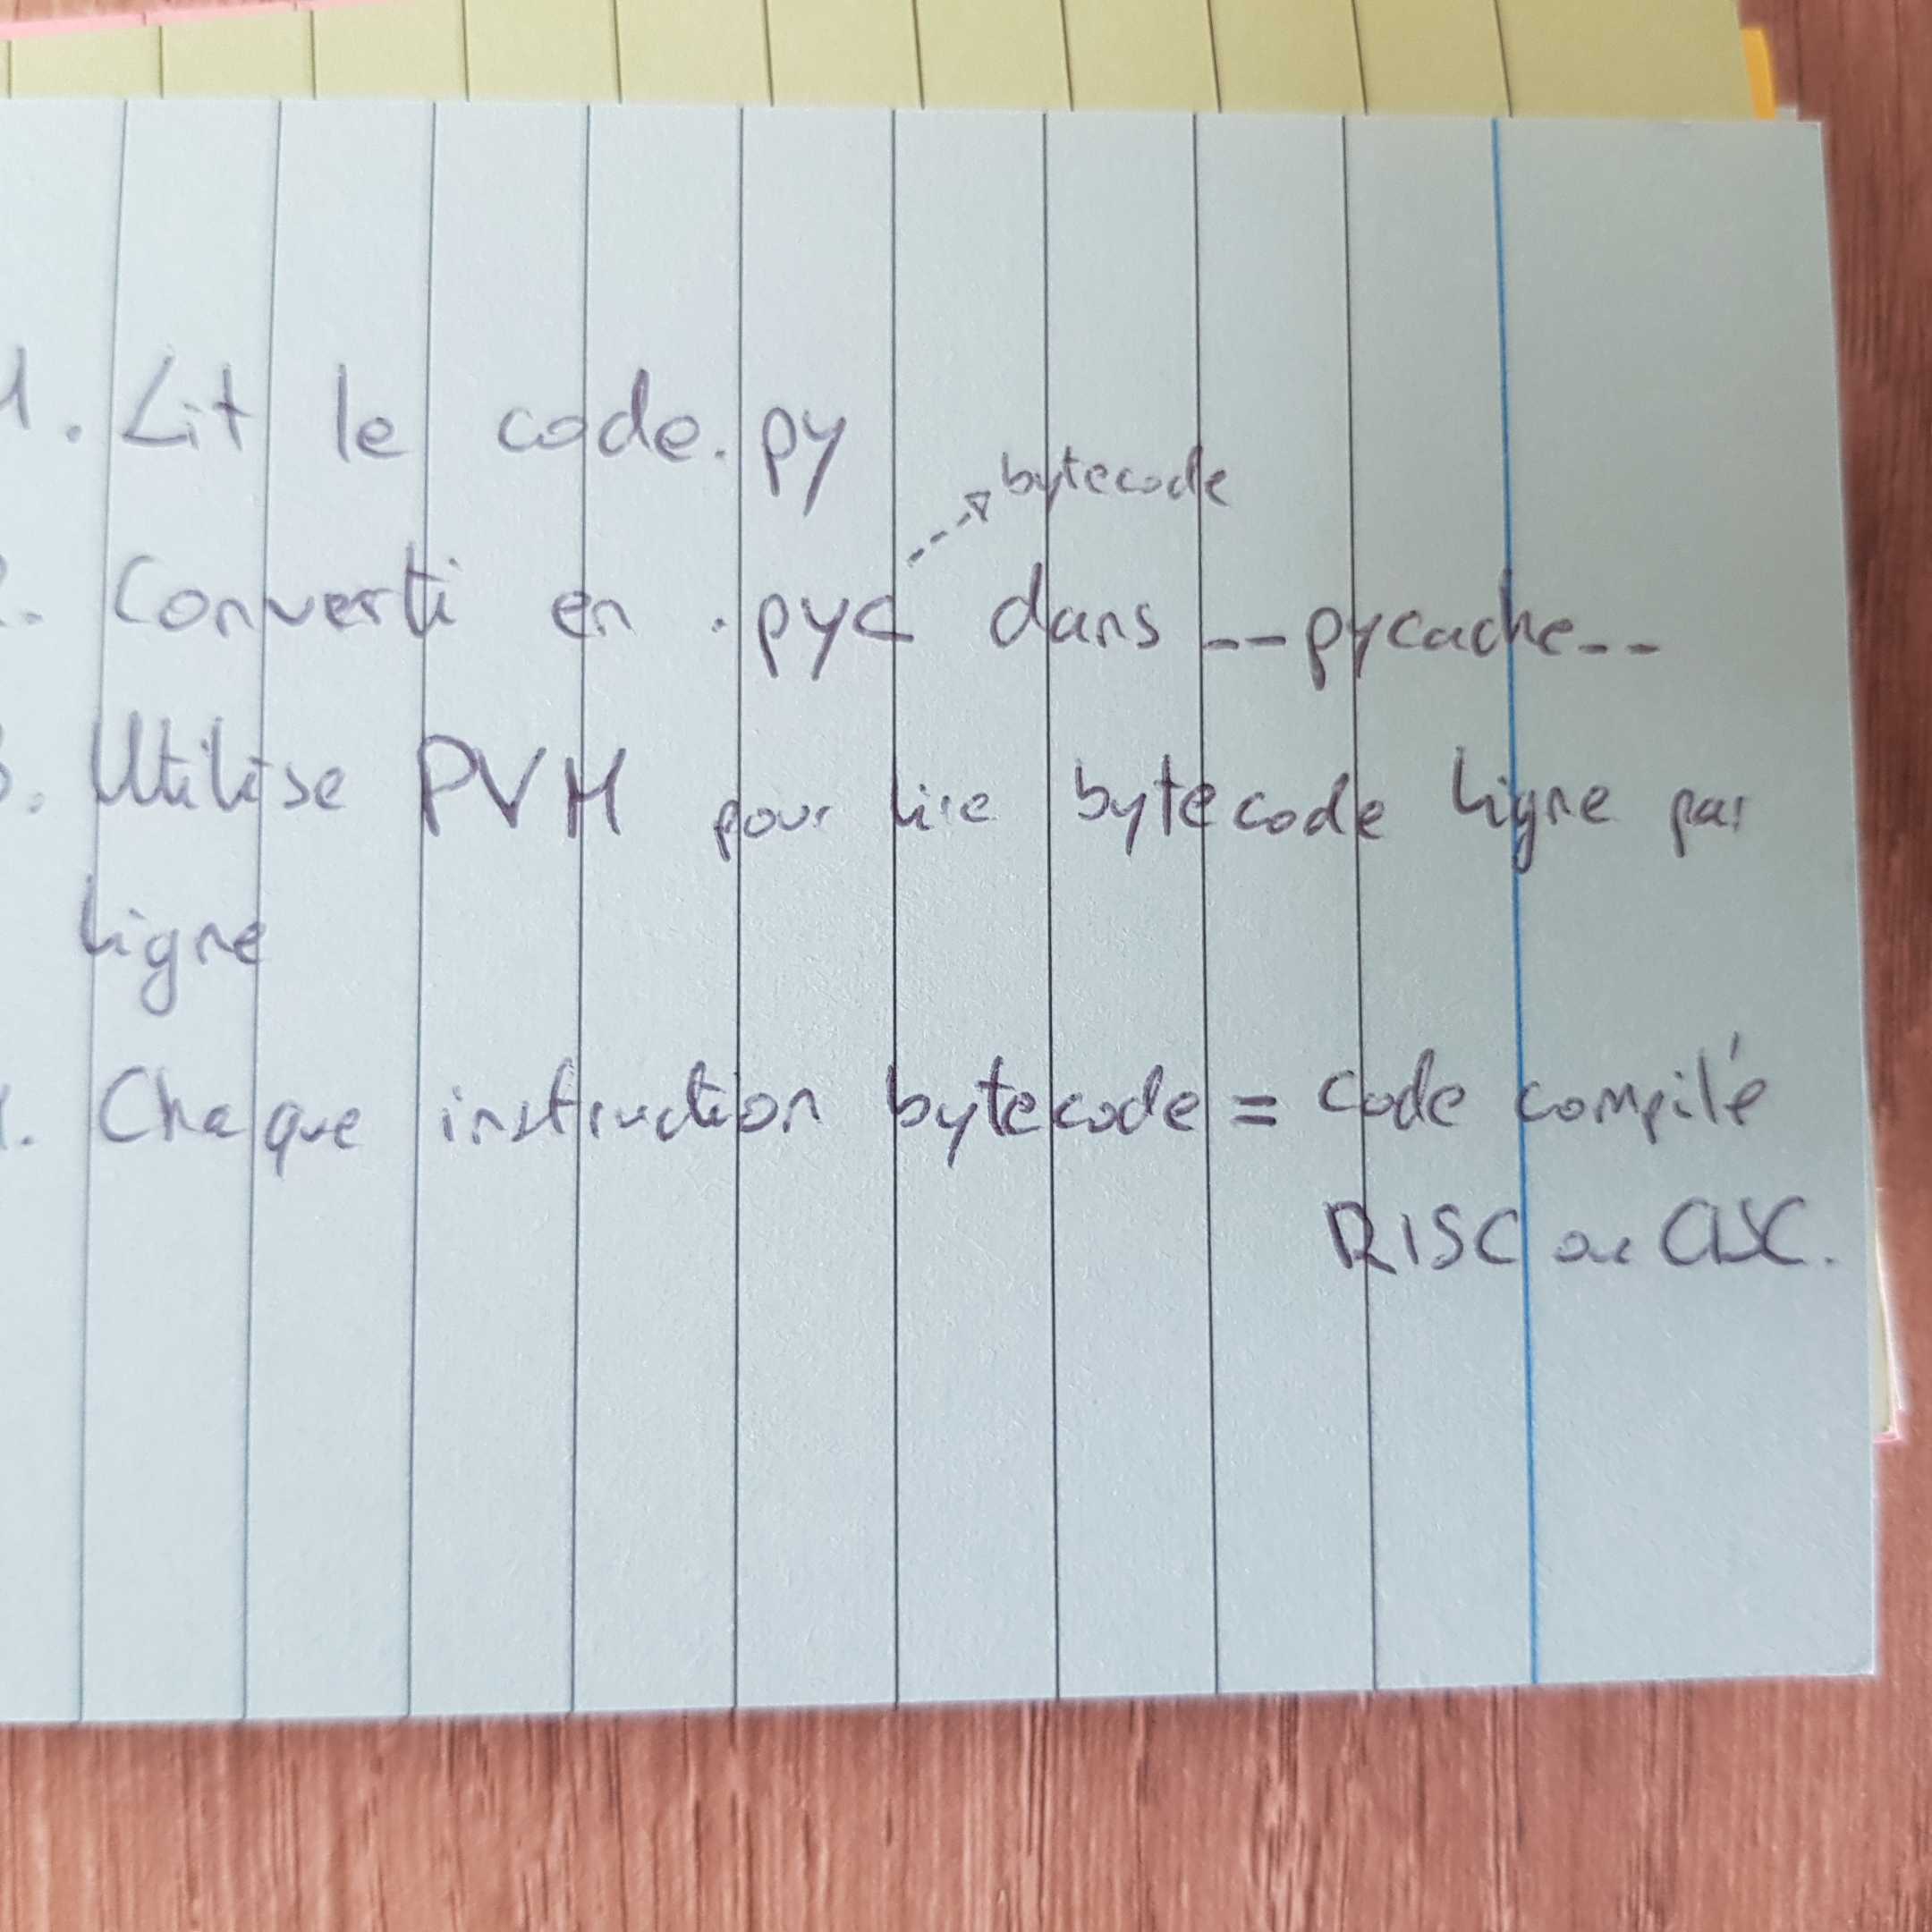 1. Lit le code.py
bytecode
2. Converti en .pyc dans __pycache__
3. Utilise PVM pour lire bytecode ligne par
ligne
4. Chaque instruction bytecode = code compilé
RISC ou CISC.